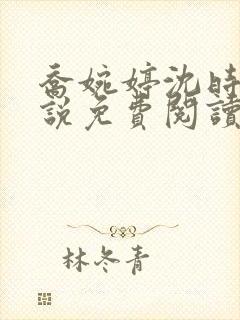 喬婉婷沈時
說免費閱讀
林冬青